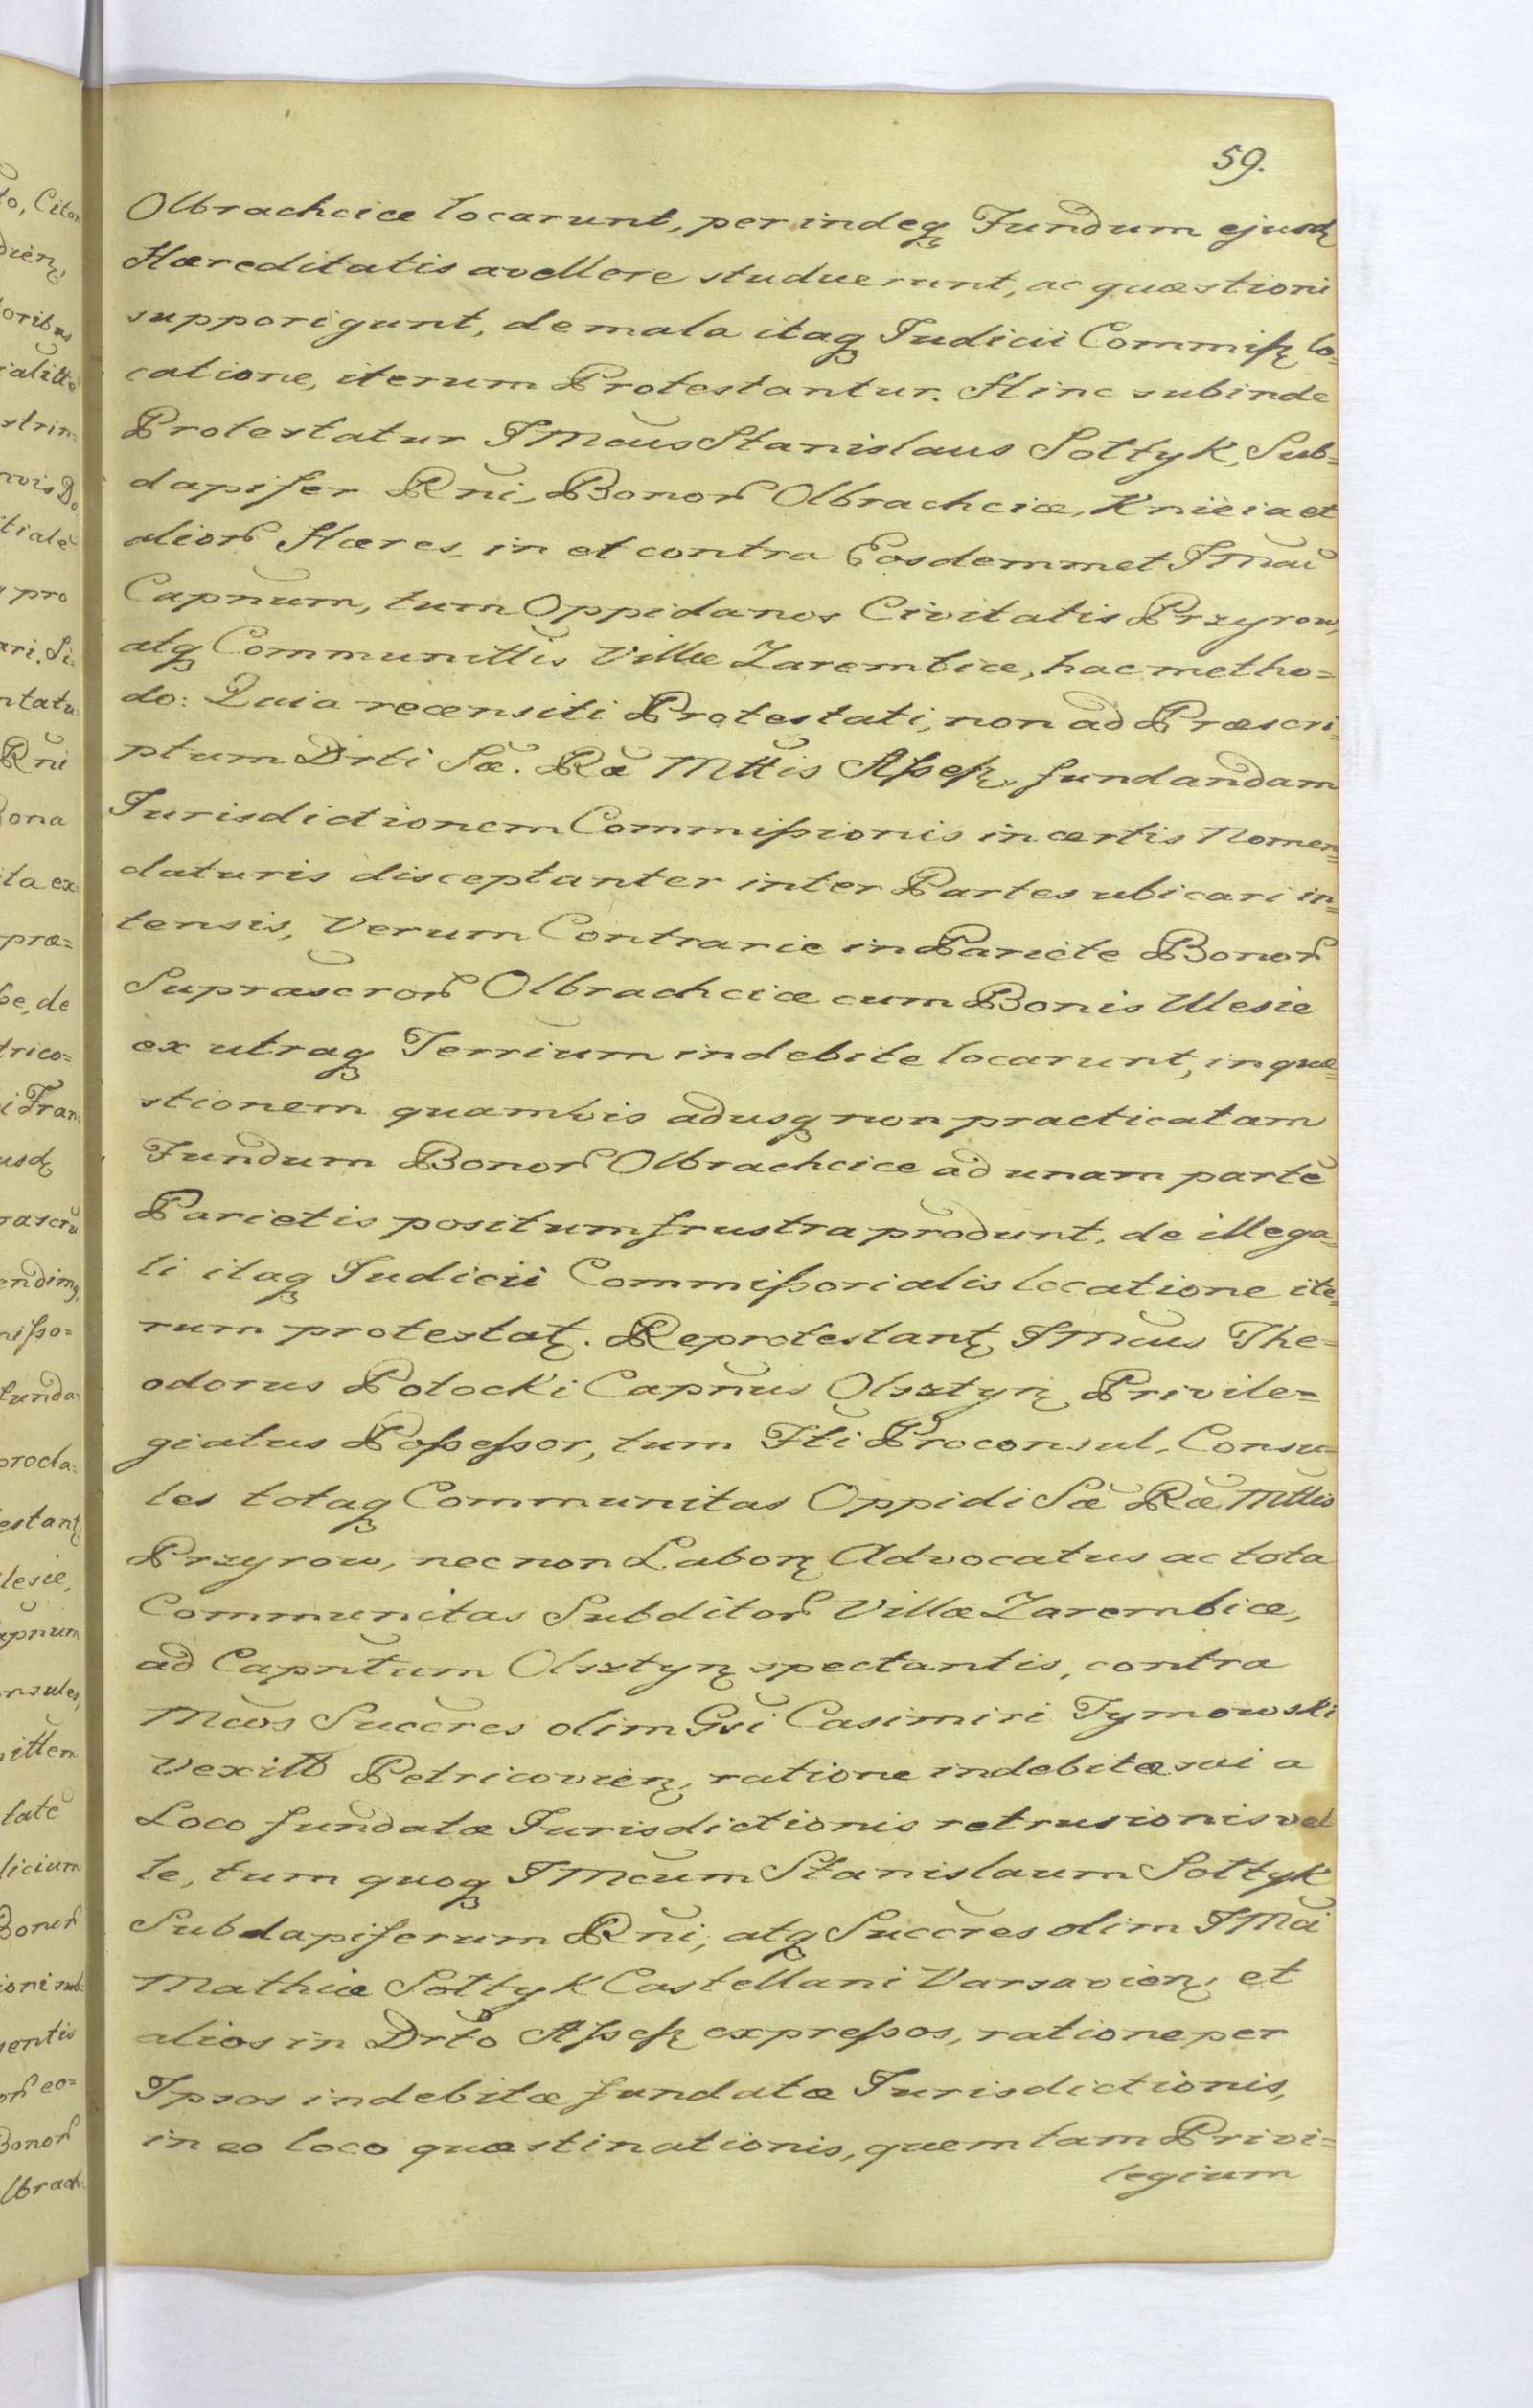 59.
Olbrachcice locarunt, perindeq Fundum ejusd
Hæreditatis avellere studuerunt, ac quæstioni
supporigunt, de mala itaq Judicii Commiss lo=
catione, iterum Protestantur. Hinc subinde
Protestatur JMcus Stanislaus Sołtyk, Sub=
dapifer Rñi, Bonor Olbrachcice, Knieia et
alior Hæres in et contra Eosdemmet JMcũ
Capñum, tum Oppidanos Civitatis Przyrow,
atq Communittis Villæ Zarembice, hac metho=
do: Quia recensiti Protestati, non ad Præscri=
ptum Drti Sæ. Ræ Mttis Assess. fundandam
Jurisdictionem Commissionis in certis Nomen=
claturis disceptanter inter Partes ubicari in=
tensis, Verum Contrarie in Pariete Bonor
Suprascror Olbrachcice cum Bonis Ulesie
ex utraq Terrium indebite locarunt, in quæ=
stionem quamvis adusq non practicatam
Fundum Bonor Olbrachcice ad unam partẽ
Parietis positum frustra produnt, de illega=
li itaq Judicii Commissorialis locatione ite=
rum protestat. Reprotestant JMcus The=
odorus Potocki Capñus Olsztyn Privile=
giatus Possessor, tum Fti Proconsul, Consu=
les totaq Communitas Oppidi Sæ Ræ Mttis
Przyrow, nec non Labor Advocatus ac tota
Communitas Subditor Villæ Zarembice,
ad Capñtum Olsztyn spectantis, contra
Mcos Succres olim Gsi Casimiri Tymowski
Vexill Petricovien, ratione indebitæ sui a
Loco fundatæ Jurisdictionis retrusionis vel
le, tum quoq JMcum Stanislaum Sołtyk
Subdapiferum Rñi, atq Succres olim JMci
Mathiæ Sołtyk Castellani Varsavien, et
alios in Drto Assess expressos, ratione per
Ipsos indebitæ fundatæ Jurisdictionis,
in eo loco quæstinationis, quem tam Privi=
legium